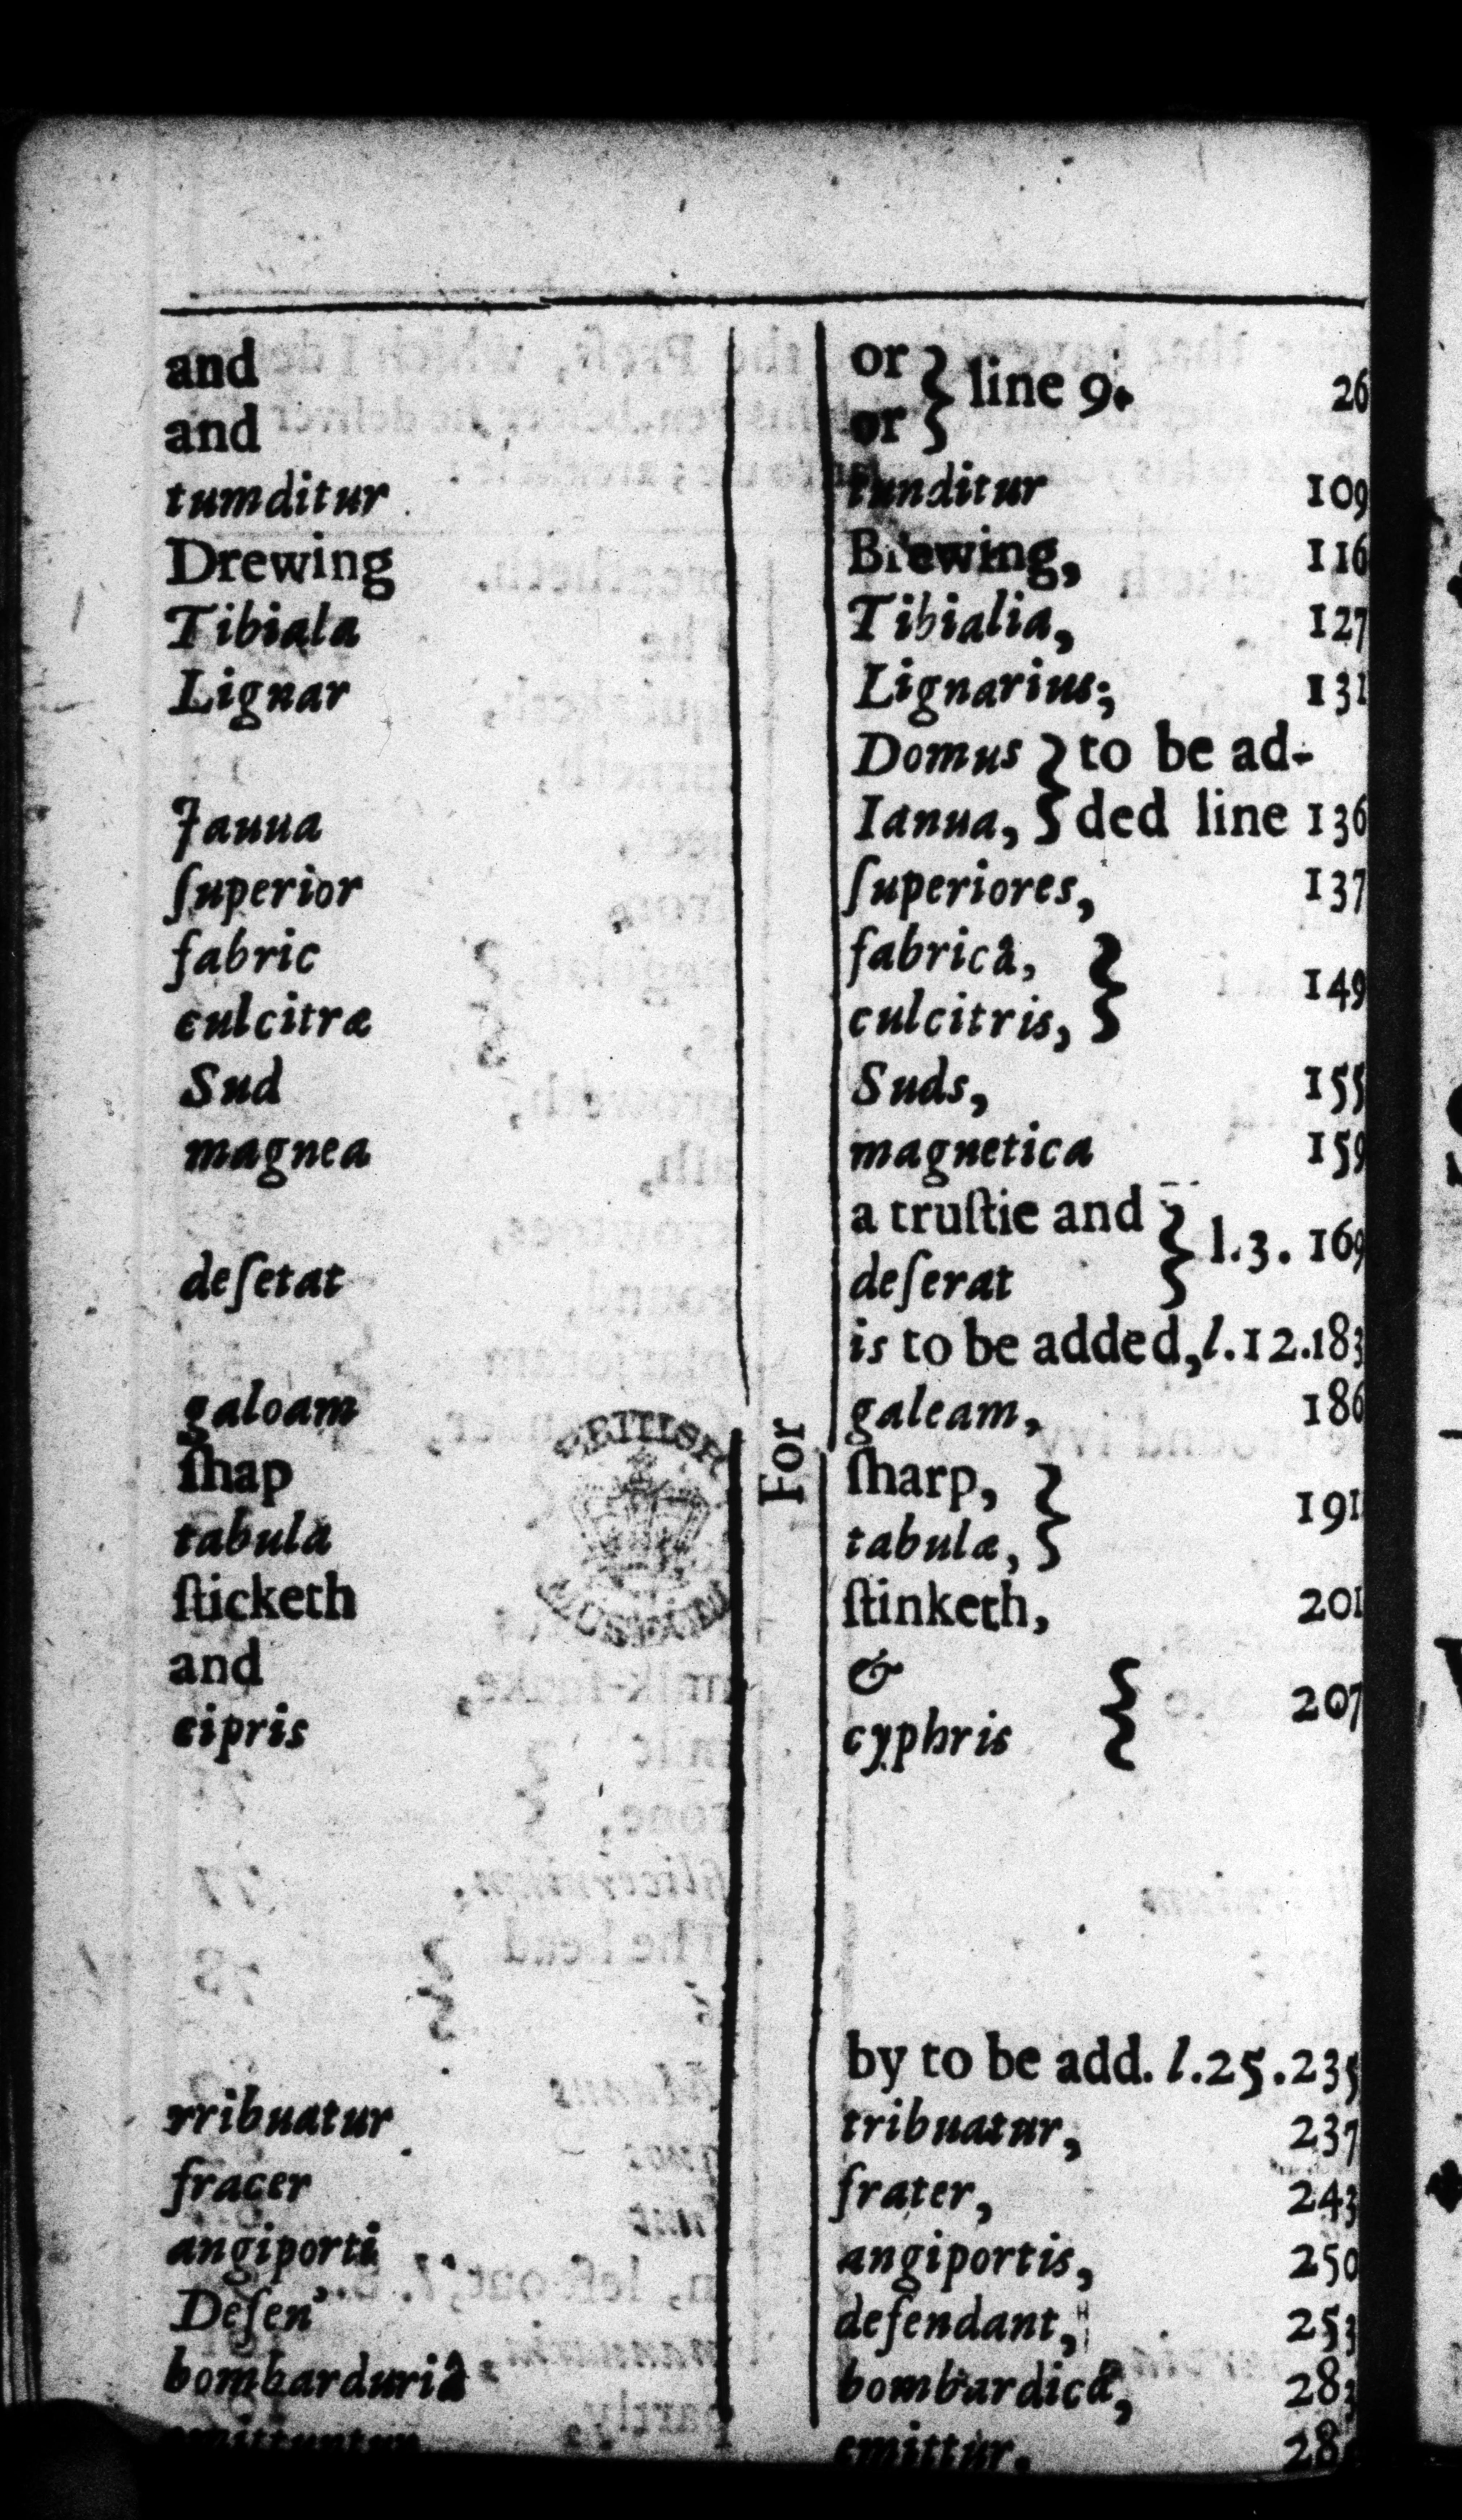 and or } line 9. 26
and or }
tumditur tunditur 109
Drewing Brewing, 116
Tibiala Tibialia, 127
Lignar Lignarius, 131
Domus } to be ad-
Jauua Ianua, } ded line 136
ſuperior ſuperiores, 137
fabric fabricâ, } 149
culcitræ culcitris, }
Sud Suds, 155
magnea magnetica 159
a truſtie and } l.3. 169
deſetat deſerat }
is to be added, l.12.183
galoam galeam, 186
For
ſhap ſharp, } 191
tabula tabulæ, }
ſticketh ſtinketh, 201
and & } 207
cipris cyphris }
by to be add. l.25.235
rribuatur tribuatur, 237
fracer frater, 243
angiporti angiportis, 250
Deſen defendant, 253
bombarduriâ bombardicâ, 283
emittuntur emittur, 28
BRITISH MUSEUM